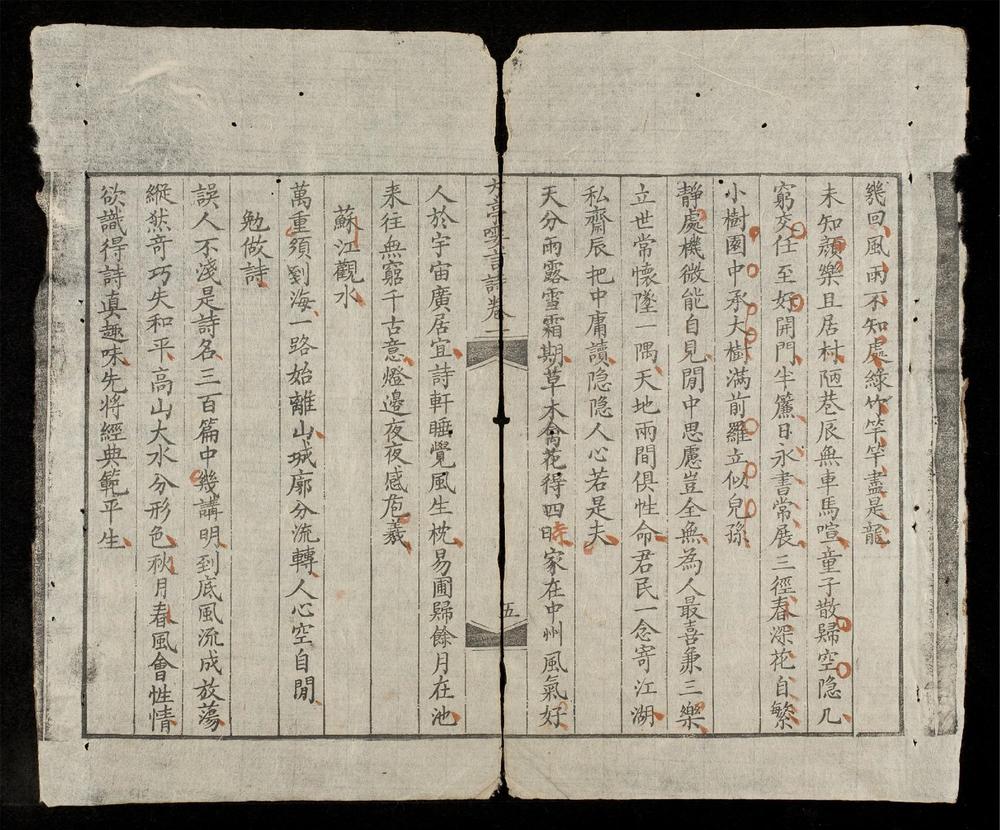 幾回風雨不知處綠竹竿竿盡是龍
未知顏樂且居村陋巷辰無車馬喧童子散歸空隐几
窮交任至好開門半簾日永書常展三徑春深花自繁
小樹園中承大樹滿前羅立似兒孫
靜處機微能自見閒中思慮豈全無為人最喜兼三樂
立世常懷墜一隅天地兩間俱性命君民一念寄江湖
私齋辰把中庸讀隐隐人心若是夫
天分雨露雪霜期草木禽花得四時家在中州風氣好
亭雲言詩卷二
五
人於宇宙廣居宜詩軒睡覺風生枕易圃歸餘月在池
来往無窮千古意燈邊夜夜感庖羲
蘇江觀水
萬重須到海一路始離山城廓分流轉人心空自閒
勉做詩
誤人不淺是詩名三百篇中幾講明到底風流成放蕩
縱然奇巧失和平高山大水分形色秋月春風會性情
欲識得詩真趣味先將經典範平生